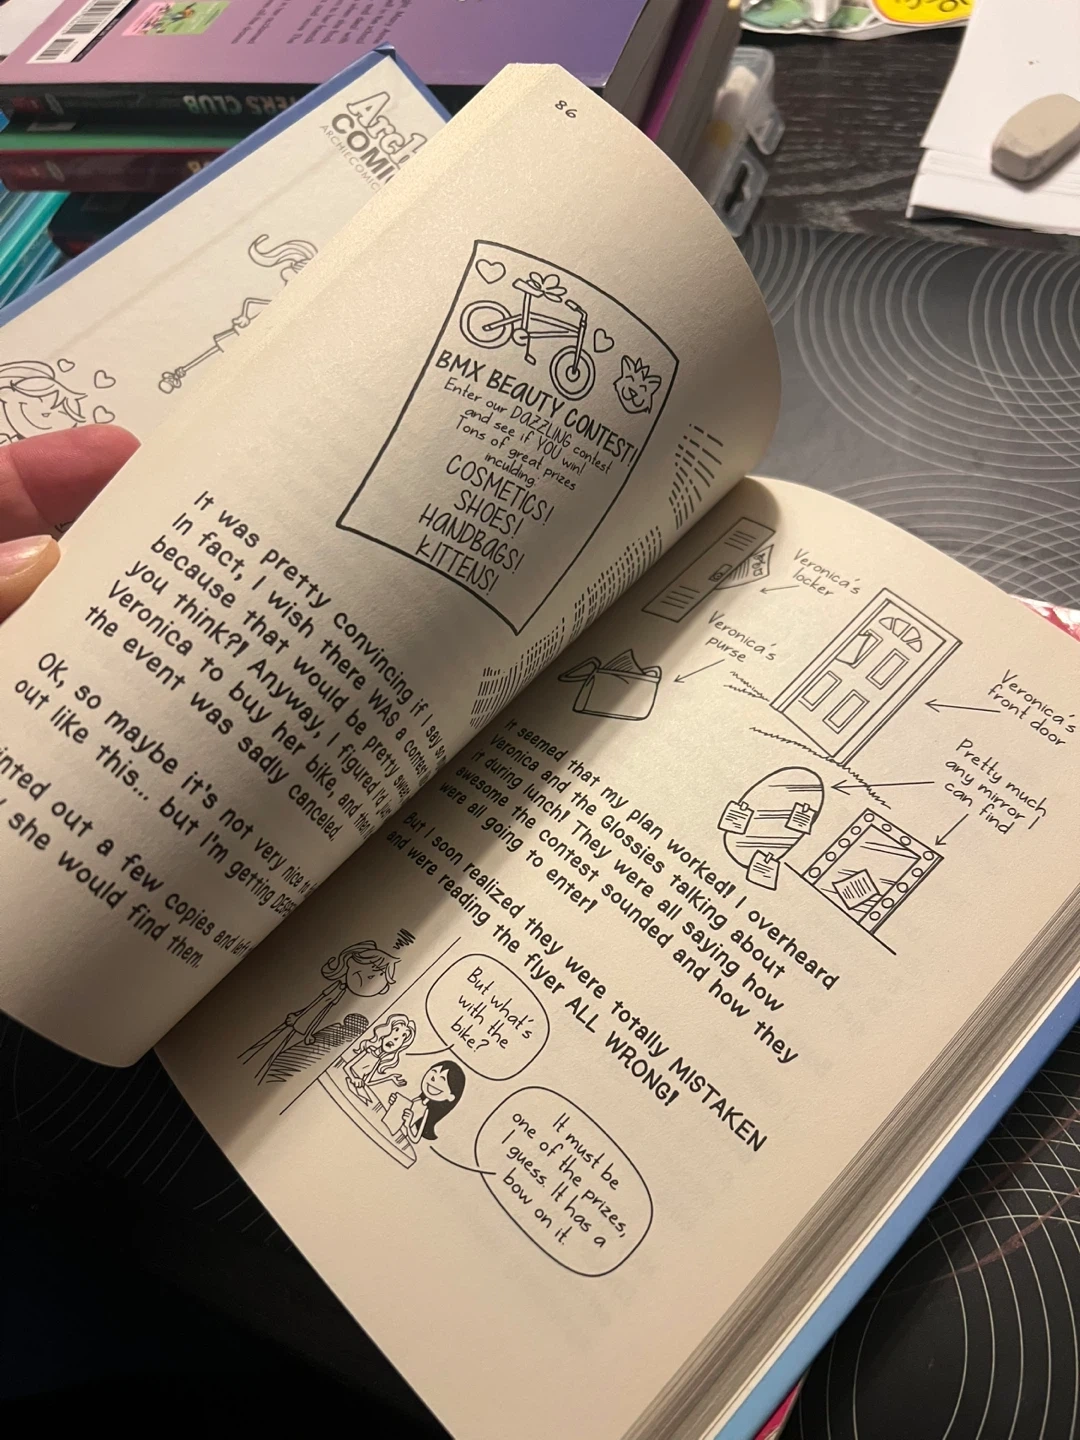 ERS CLUB
Arch
COMI
ARCHIECOMIC
86
BMX BEAUTY CONTEST!
Enter our DAZZLING contest
and see if YOU win!
Tons of great prizes
inculding:
COSMETICS!
SHOES!
HANDBAGS!
KITTENS!
It was pretty convincing if I say so
In fact, I wish there WAS a contest
because that would be pretty sweet
you think?! Anyway, I figured I'd just
Veronica to buy her bike, and then
the event was sadly canceled.
OK, so maybe it's not very nice to
out like this... but I'm getting
inted out a few copies and left
she would find them.
Veronica's
locker
Veronica's
purse
Veronica's
front door
Pretty much
any mirror I
can find
It seemed that my plan worked! I overheard
Veronica and the Glossies talking about
it during lunch! They were all saying how
awesome the contest sounded and how they
were all going to enter!
But I soon realized they were totally MISTAKEN
and were reading the flyer ALL WRONG!
But what's
with the
bike?
It must be
one of the prizes,
I guess. It has a
bow on it.